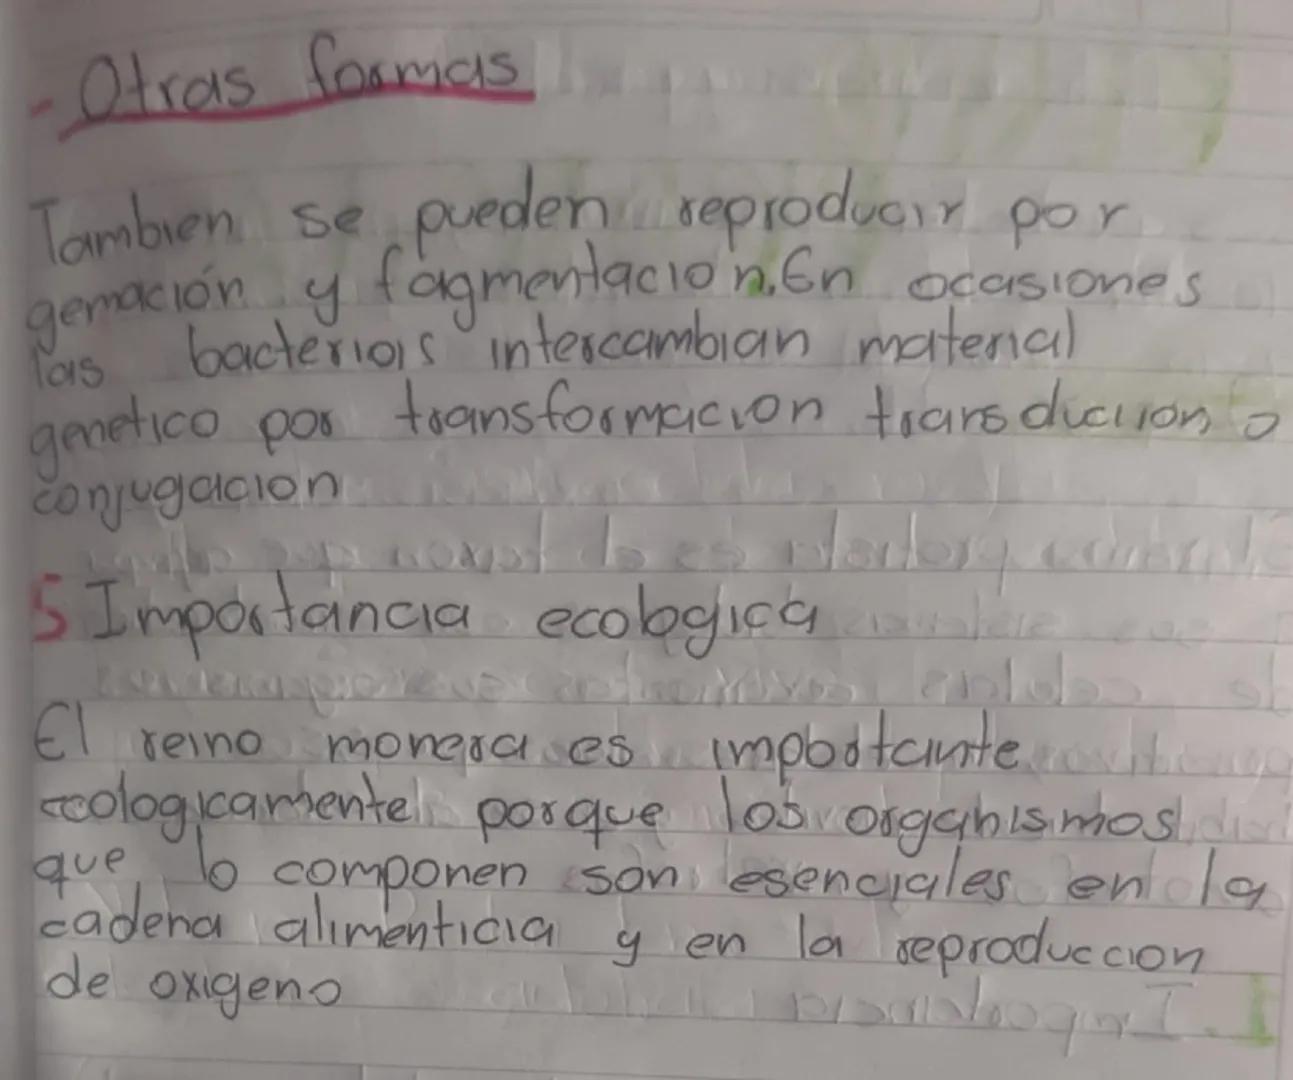 - Otras formas
Tambien se pueden reproducir por
gemación y fagmentacion. En ocasiones
las bacterias intercambian material
genetico por transformacion transducion o
conjugacion
5 Importancia ecologica
El reino monera es impostante
ecologicamente porque los organismos
que lo componen son esenciales en la
cadena alimenticia y en la reproduccion
de oxigeno